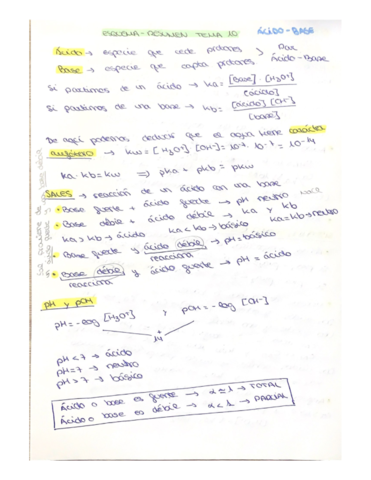 ESQUEMA-RESUMEN TEMA 10 ÁCIDO-BASE
Ácido → especie que cede protones > Par
Base → especie que capta protones Ácido-Base
Si partimos de un ácido → ka = [Base]·[H3O+] / [ácido]
Si partimos de una base → kb = [ácido][OH-] / [base]
De aquí podemos deducir que el agua tiene carácter
anfótero → kw = [H3O+][OH-] = 10^-7 · 10^-7 = 10^-14
ka·kb = kw ⇒ pka + pkb = pkw
SALES → reacción de un ácido con una base
• Base fuerte + ácido fuerte → pH neutro
• Base débil + ácido débil → ka y kb
ka > kb → ácido ka < kb → básico ka = kb → neutro
• Base fuerte y ácido débil → pH = básico
reacciona
• Base débil y ácido fuerte → pH = ácido
reacciona
pH y pOH
pH = -log [H3O+] y pOH = -log [OH-]
+
14
pH < 7 → ácido
pH = 7 → neutro
pH > 7 → básico
Ácido o base es fuerte → α ≃ 1 → TOTAL
Ácido o base es débil → α < 1 → PARCIAL